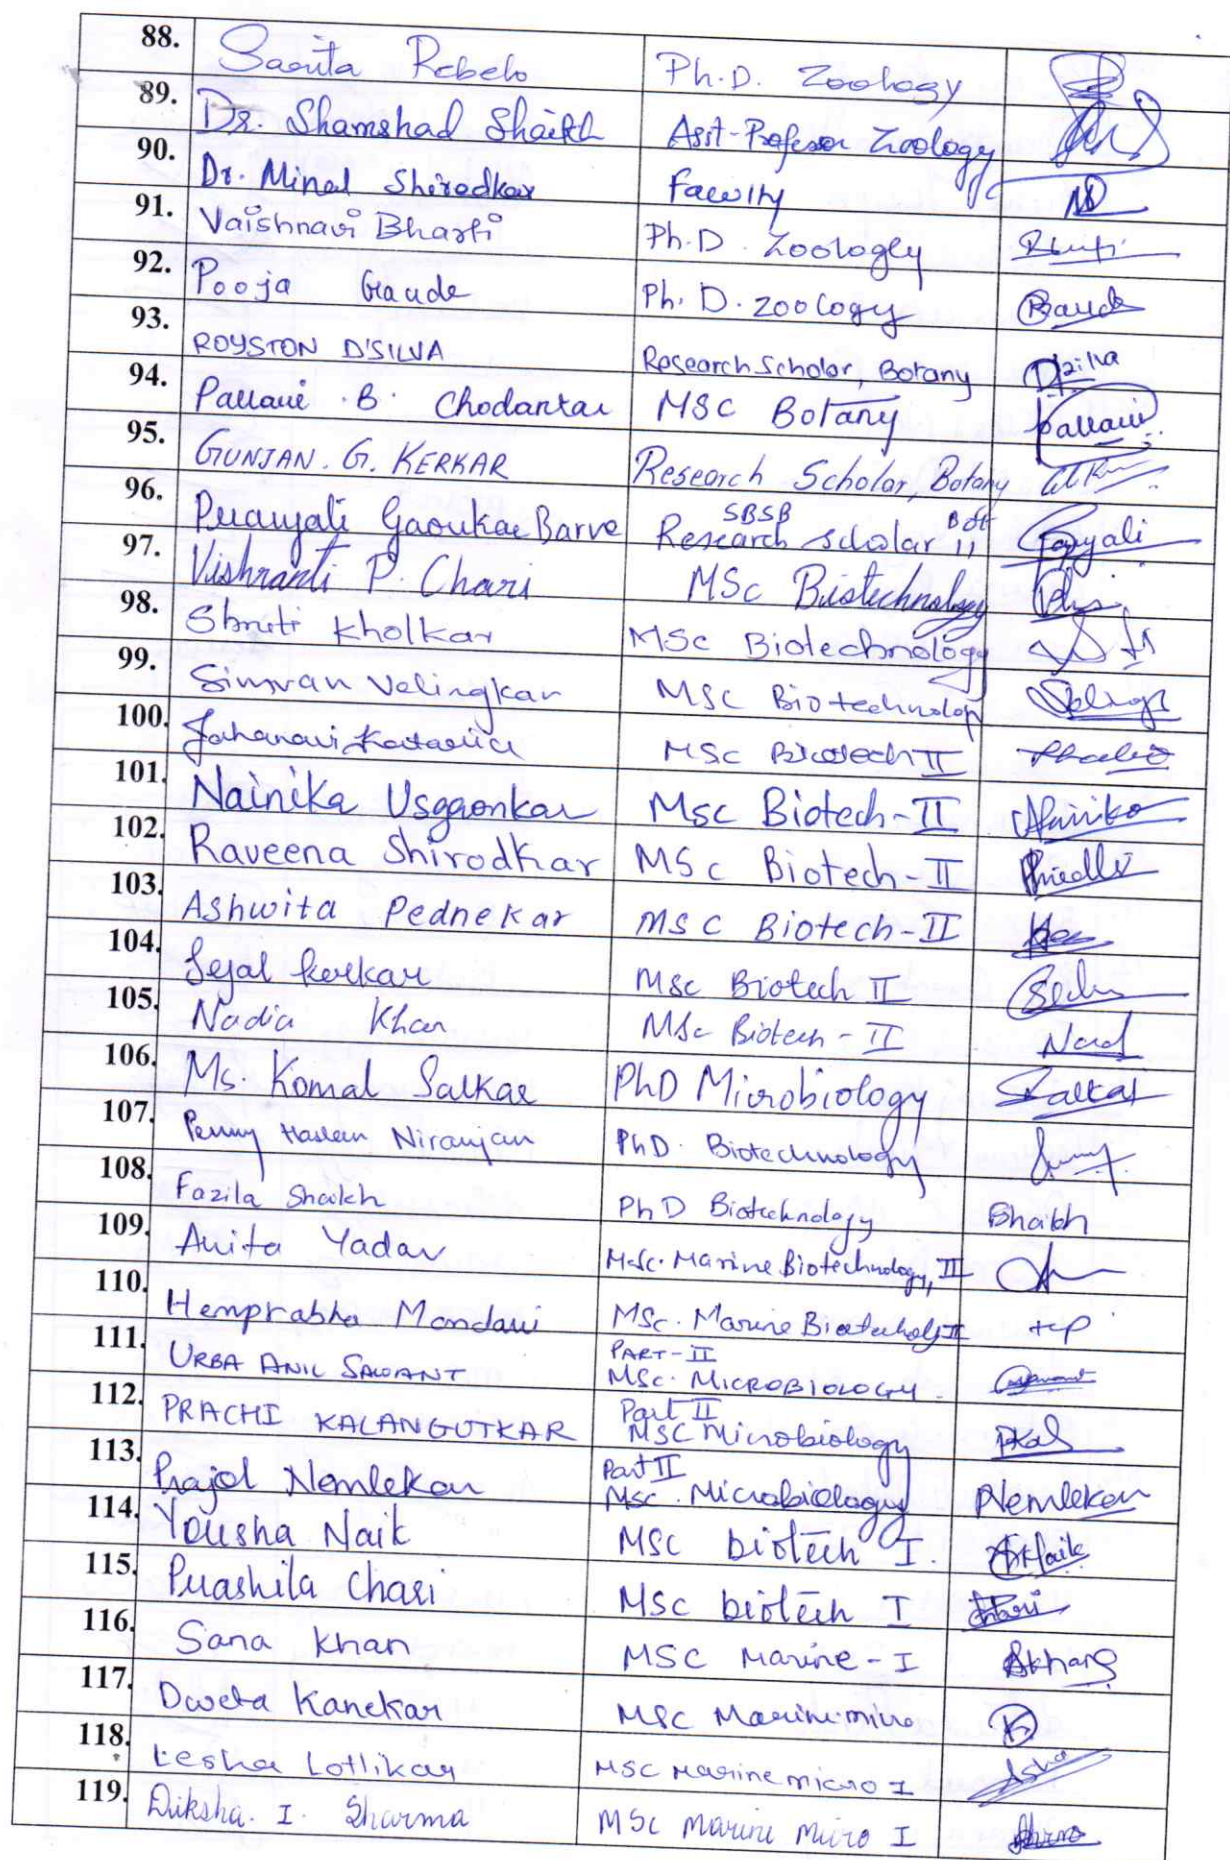 88. Sarita Rebelo Ph.D. Zoology
89. Dr. Shamshad Shaikh Asst-Professor Zoology
90. Dr. Minal Shirodkar Faculty
91. Vaishnavi Bharti Ph.D. Zoologly
92. Pooja Gaude Ph. D. Zoology Gaude
93. ROYSTON D'SILVA Research Scholar, Botany D'silva
94. Pallavi .B. Chodankar MSC Botany Pallavi
95. GUNJAN. G. KERKAR Research Scholar, Botany
96. Pranjali Gaonkar Barve SBSB Bot
Research Scholar 11
97. Vishranti P. Chari MSc Biotechnology
98. Shruti Kholkar MSc Biotechnology
99. Simran Velingkar MSC Biotechnology
100. Jahanavi Kataria MSC Biotech II
101. Nainika Usgaonkar Msc Biotech-II Nainika
102. Raveena Shirodkar MSc Biotech-II
103. Ashwita Pednekar MSC Biotech-II
104. Sejal Kerkar MSc Biotech II
105. Nadia Khan MSc Biotech-II
106. Ms. Komal Salkar PhD Microbiology Salkar
107. Penny Niranjan PhD. Biotechnology
108. Fazila Shaikh PhD Biotechnology Shaikh
109. Anita Yadav M.Sc. Marine Biotechnology, II
110. Hemprabha Mandavi MSc. Marine Biotechnology II
111. URBA ANIL SAWANT PART-II
MSc. MICROBIOLOGY.
112. PRACHI KALANGUTKAR Part II
MSC Microbiology
113. Prajol Nemlekar Part II
MSc. Microbiology Nemlekar
114. Yousha Naik MSC biotech I. Naik
115. Prashila Chari MSC biotech I Chari
116. Sana Khan MSC Marine-I
117. Dweta Kanekar MSC Marine micro
118. Lesha Lotlikar MSC Marine micro I
119. Diksha. I. Sharma MSc Marine Micro I